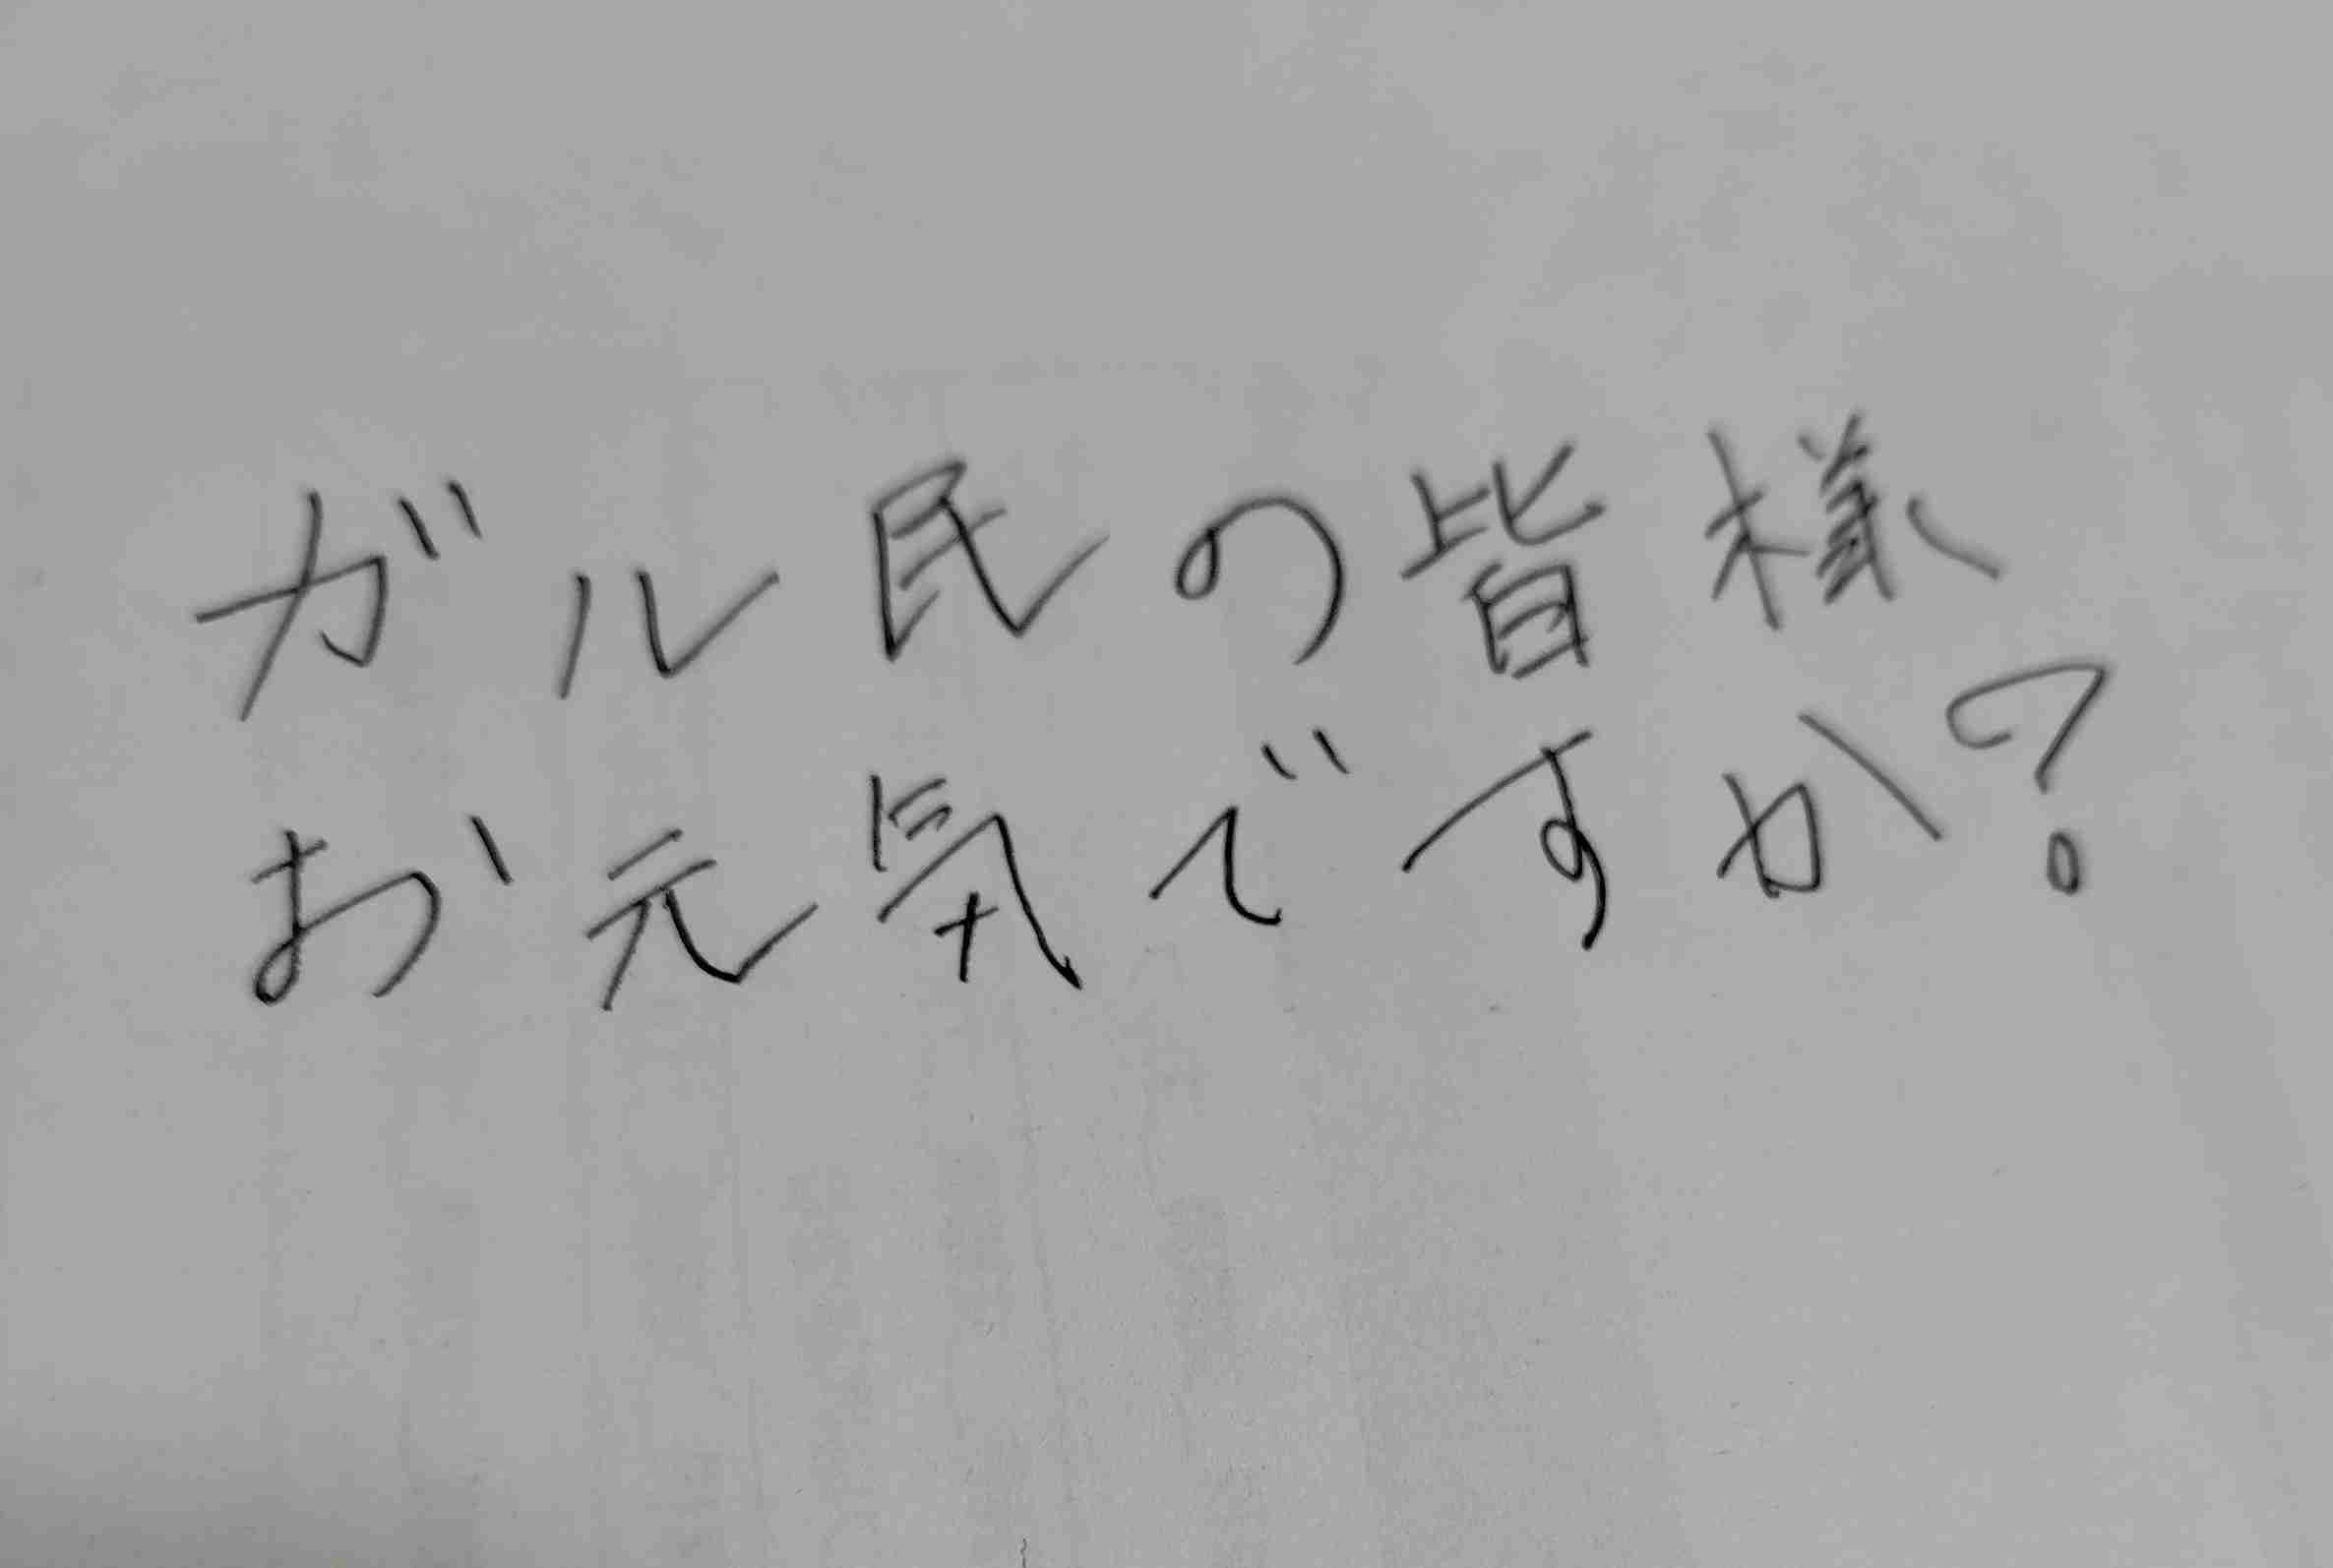 ガル民の皆様、
お元気ですか?